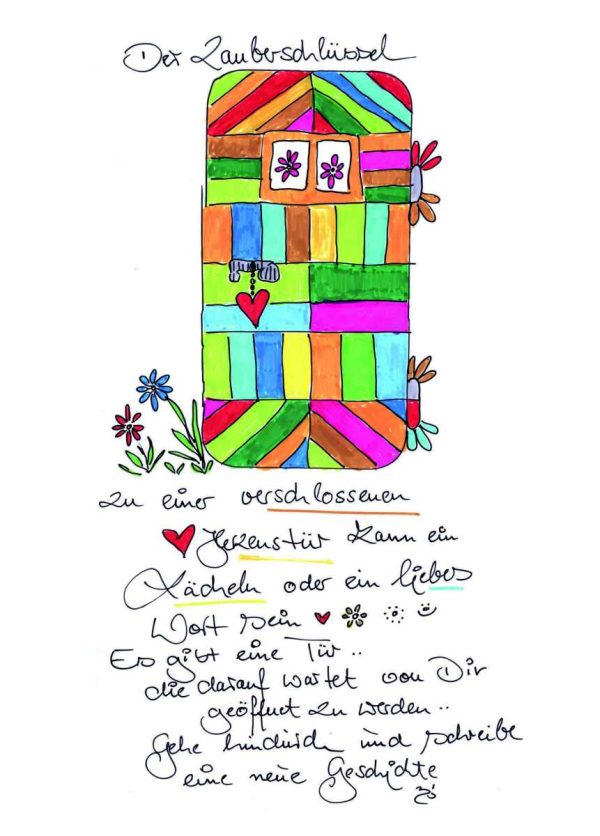 Der Zauberschlüssel
zu einer verschlossenen
Herzenstür kann ein
Lächeln oder ein liebes
Wort sein
Es gibt eine Tür..
die darauf wartet von Dir
geöffnet zu werden..
Gehe hindurch und schreibe
eine neue Geschichte